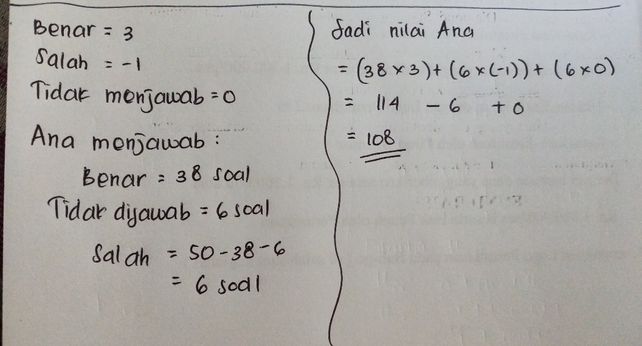 Benar = 3
Salah = -1
Tidak menjawab = 0
Ana menjawab :
Benar = 38 soal
Tidak dijawab = 6 soal
Salah = 50 - 38 - 6
= 6 soal
Jadi nilai Ana
= (38 x 3) + (6 x (-1)) + (6 x 0)
= 114 - 6 + 0
= 108